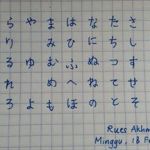 らやまはなたさ
りみひにちし
るゆむふぬつす
れめへねてせ
ろよもほのとそ
Rues Akhm
Minggu, 18 F